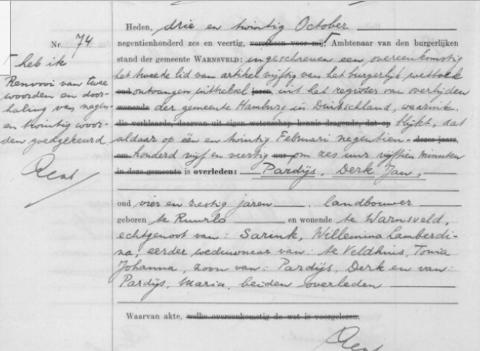 Nr. 74
heb ik
Renvooi van twee
woorden en door-
haling van negen
en twintig woor-
den goedgekeurd
Heden, drie en twintig October
negentienhonderd zes en veertig, verscheen voor mij, Ambtenaar van den burgerlijken
stand der gemeente WARNSVELD: ingeschreven een overeenkomstig
het tweede lid van artikel vijftig van het burgerlijk wetboek
oud ontvangen uittreksel jaren, uit het register van overlijden
wonende der gemeente Hamburg in Duitschland, waaruit
die verklaarde, daarvan uit eigen wetenschap kennis dragende, dat op blijkt, dat
aldaar op één en twintig Februari negentien- dezes jaars,
om honderd vijf en veertig uur om zes uur vijftien minuten
in deze gemeente is overleden: Pardijs, Derk Jan,
oud vier en zestig jaren landbouwer
geboren te Ruurlo en wonende te Warnsveld,
echtgenoot van: Sarink, Willemina Lamberdi-
na, eerder weduwnaar van: te Veldhuis, Tonia
Johanna, zoon van: Pardijs, Derk en van:
Pardijs, Maria, beiden overleden
Waarvan akte, welke overeenkomstig de wet is voorgelezen.